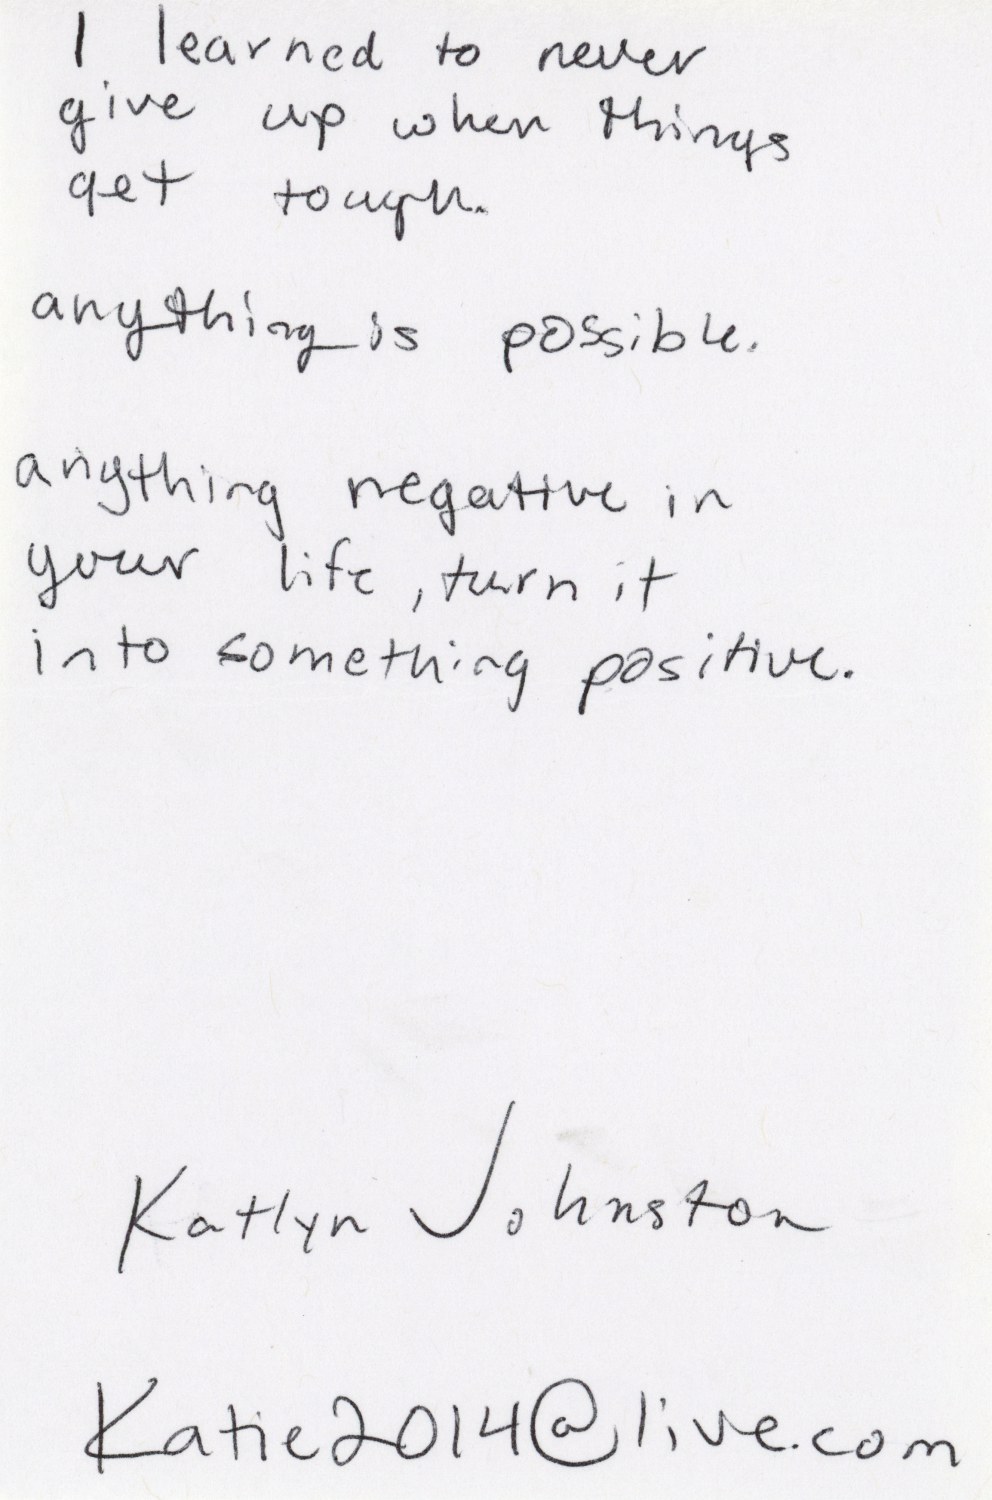 I learned to never
give up when things
get tough.
anything is possible.
anything negative in
your life, turn it
into something positive.
Katlyn Johnston
Katie2014@live.com